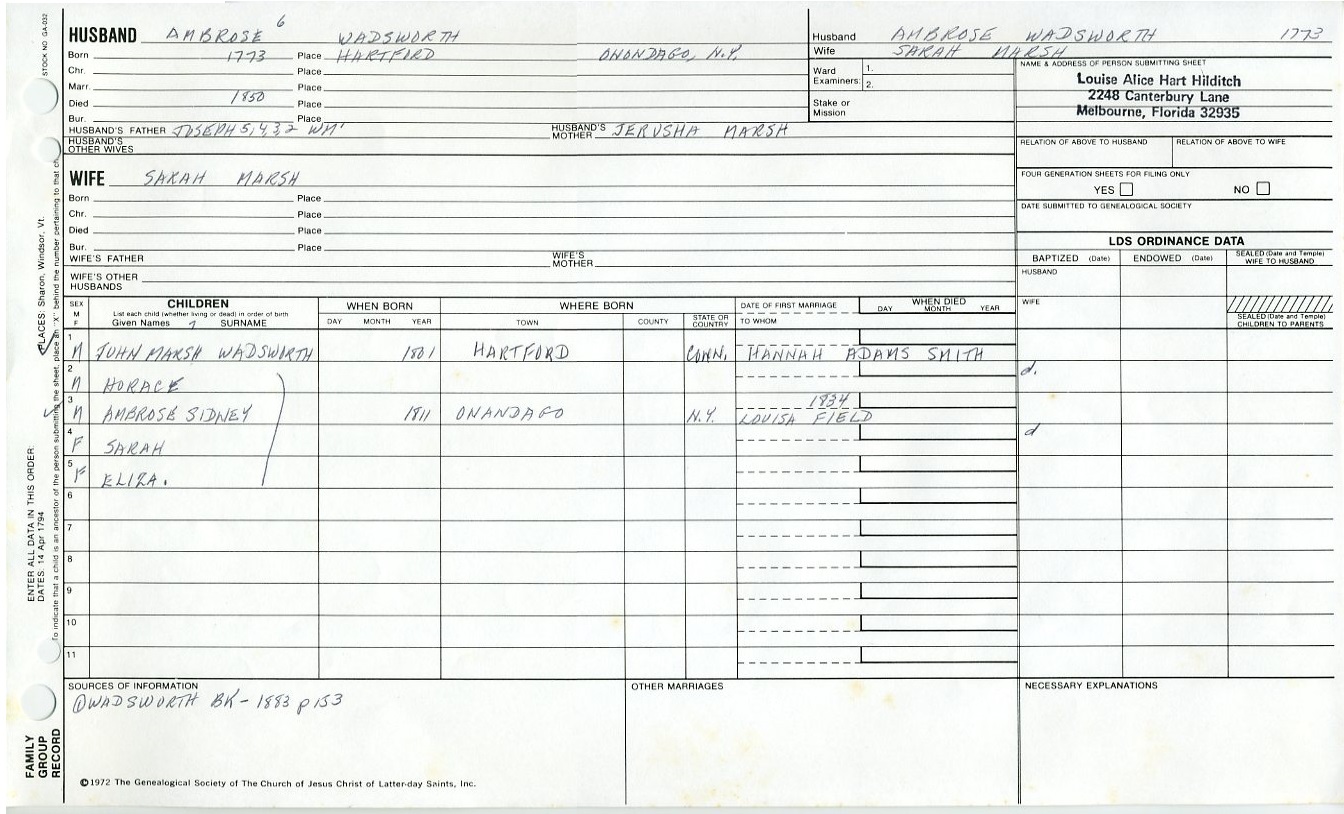 STOCK NO GA-032
HUSBAND AMBROSE 6 WADSWORTH
Born 1773 Place HARTFORD ONONDAGO, N.Y.
Chr. Place
Marr. Place
Died 1850 Place
Bur. Place
HUSBAND'S FATHER JOSEPH 5, 4, 3, 2 WM' HUSBAND'S MOTHER JERUSHA MARSH
HUSBAND'S OTHER WIVES
Husband AMBROSE WADSWORTH 1773
Wife SARAH MARSH
Ward Examiners: 1.
2.
Stake or Mission
NAME & ADDRESS OF PERSON SUBMITTING SHEET
Louise Alice Hart Hilditch
2248 Canterbury Lane
Melbourne, Florida 32935
RELATION OF ABOVE TO HUSBAND RELATION OF ABOVE TO WIFE
FOUR GENERATION SHEETS FOR FILING ONLY
YES NO
DATE SUBMITTED TO GENEALOGICAL SOCIETY
WIFE SARAH MARSH
Born Place
Chr. Place
Died Place
Bur. Place
WIFE'S FATHER WIFE'S MOTHER
WIFE'S OTHER HUSBANDS
LDS ORDINANCE DATA
BAPTIZED (Date) ENDOWED (Date) SEALED (Date and Temple) WIFE TO HUSBAND
HUSBAND
WIFE
SEALED (Date and Temple) CHILDREN TO PARENTS
SEX M F CHILDREN WHEN BORN WHERE BORN DATE OF FIRST MARRIAGE WHEN DIED
List each child (whether living or dead) in order of birth
Given Names 7 SURNAME DAY MONTH YEAR TOWN COUNTY STATE OR COUNTRY TO WHOM DAY MONTH YEAR
1 M JOHN MARSH WADSWORTH 1801 HARTFORD CONN. HANNAH ADAMS SMITH
2 M HORACE d.
3 M AMBROSE SIDNEY 1811 ONANDAGO N.Y. 1834 LOUISA FIELD
4 F SARAH d
5 F ELIZA.
6
7
8
9
10
11
SOURCES OF INFORMATION
① WADSWORTH BK - 1883 p 153
OTHER MARRIAGES
NECESSARY EXPLANATIONS
©1972 The Genealogical Society of The Church of Jesus Christ of Latter-day Saints, Inc.
FAMILY GROUP RECORD
ENTER ALL DATA IN THIS ORDER:
DATES: 14 Apr 1794
PLACES: Sharon, Windsor, Vt.
To indicate that a child is an ancestor of the person submitting the sheet, place an "X" behind the number pertaining to that